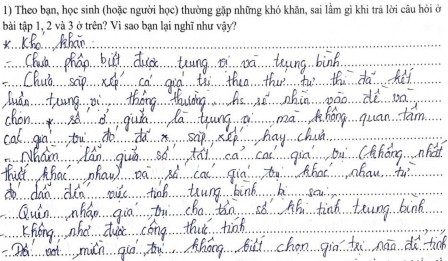 1) Theo bạn, học sinh (hoặc người học) thường gặp những khó khăn, sai lầm gì khi trả lời câu hỏi ở
bài tập 1, 2 và 3 ở trên? Vì sao bạn lại nghĩ như vậy?
*. Khó khăn:
- Chưa phân biệt được trung vị và trung bình
- Chưa sắp xếp các giá trị theo thứ tự thì đã kết
luận trung vị, thông thường hs sẽ nhìn vào đề và
chọn số ở giữa là trung vị mà không quan tâm
các giá trị đó đã sắp xếp hay chưa.
- Nhầm lẫn giữa số tất cả các giá trị (không nhất
thiết khác nhau) và số các giá trị khác nhau từ
đó dẫn đến việc tính trung bình bị sai,
- Quên nhân giá trị cho tần số khi tính trung bình
- Không nhớ được công thức tính
- Đối với miền giá trị không biết chọn giá trị nào để tính